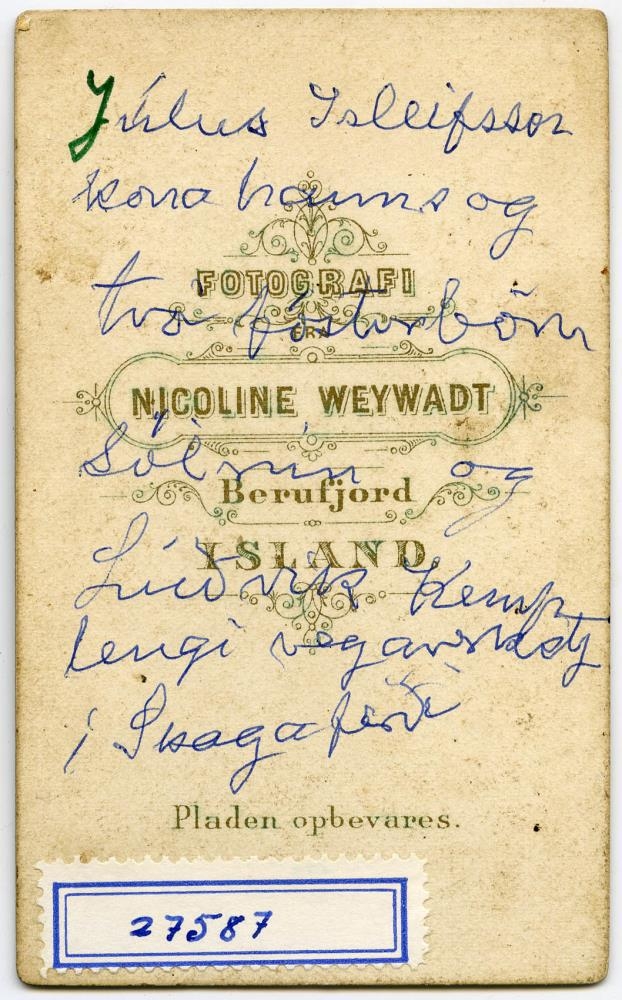 Júlíus Ísleifsson
kona hanns og
FOTOGRAFI
tvö fósturbörn
FRA
NICOLINE WEYWADT
Sólrún og
Berufjord
ISLAND.
Lúðvik Kemp
lengi vegaverkstj
í Skagafirði
Pladen opbevares.
27587